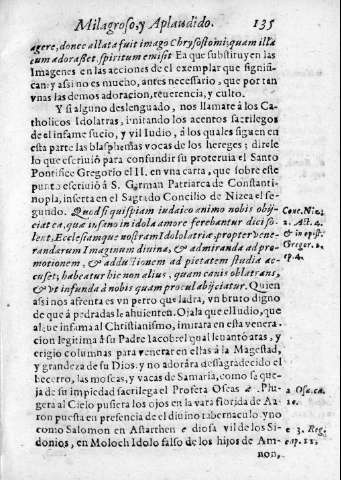 Milagroso, y Aplaudido. 135
agere, donec allata fuit imago Chrysostomi; quam illa
cum adorasset, spiritum emisit Ea que substituyen las
Imagenes en las acciones de el exemplar que significan
can: y assi no es mucho, antes necessario, que por tan
vnas las demos adoracion, reuerencia, y culto.
Y si alguno deslenguado, nos llamare à los Ca-
tholicos Idolatras, imitando los acentos sacrilegos
de el infame sucio, y vil Iudio, à los quales siguen en
esta parte las blasphemas vocas de los hereges; direle
lo que escriuiò para confundir su proteruia el Santo
Pontifice Gregorio el II. en vna carta, que sobre este
punto escriuiò à S. German Patriarca de Constanti-
nopla, inserta en el Sagrado Concilio de Nizea el se-
gundo. Quod si quispiam iudaico animo nobis obij-
ciat ea, quæ in samo idola amore ferebantur dici so-
lent, Ecclesiamque nostram Idololatriæ, propter vene-
randerum Imaginum diuina, & admiranda ad pro-
motionem, & adductionem ad pietatem studia ac-
cuset, habeatur hic non alius, quam canis oblatrans,
& vt infunda à nobis quam procul abijciatur. Quien
assi nos afrenta es vn perro que ladra, vn bruto digno
de que à pedradas le ahuienten. Ojala que el Iudio, que
assi que infama al Christianismo, imitara en esta venera-
cion legitima à su Padre Iacob el qual leuantò aras, y
erigiò columnas para venerar en ellas à la Magestad,
y grandeza de su Dios: y no adorára desagradecido el
becerro, las moscas, y vacas de Samaria, como se que-
ja de su impiedad sacrilega el Profeta Oseas a Plu-
gera al Cielo pusiera los ojos en la vara florida de Aa-
ron puesta en presencia de el diuino tabernaculo, y no
como Salomon en Astarthen e diosa vil de los Si-
donios, en Moloch Idolo falso de los hijos de Am-
non,
Conc. Nic.
2. Act. 4.
& in epist.
Gregor. 2.
ep. 4.
a Ose. ca.
10.
e 3. Reg.
cap. 11.